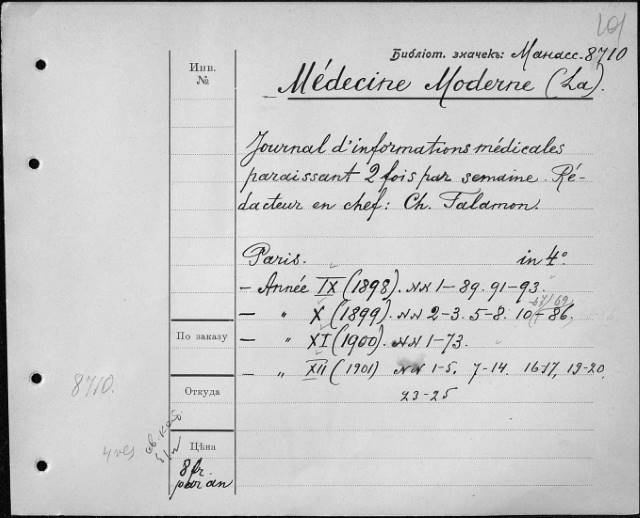 101
Библіот. значекъ: Манасс. 8710
Инв. №
Médecine Moderne (La).
Journal d'informations médicales
paraissant 2 fois par semaine. Ré-
dacteur en chef: Ch. Talamon.
Paris. in 4°
– Année IX (1898). NN 1–89. 91–93.
– " X (1899). NN 2–3. 5–8. 10–86.
67/69
– " XI (1900). NN 1–73.
По заказу
– " XII (1901) NN 1–5. 7–14. 16–17, 19–20.
23–25
8710.
Откуда
4 ves
Цѣна
8 fr.
pour an